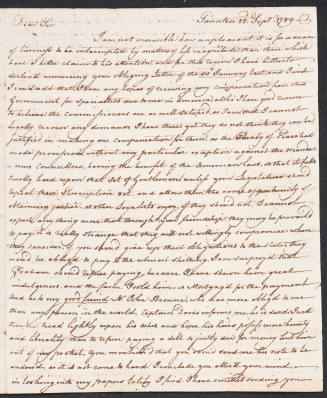 Taunton 22. Sept. 1789
Dear Sir
I am not insensible how unpleasant it is for a man
of business to be interrupted by matters of less magnitude than those which
have a better claim to his attention, and for that reason I have hitherto
declined answering your obliging letter of the 20 January last, and I wish
I could add that I have any hopes of receiving any compensation from this
Government for specialties due to me in America, altho' I have good reason
to believe the Commissioners are as well satisfied, as I am, that I cannot
legally recover any demands I have there; yet they do not think they can be
justified in making me compensation for them, as the Treaty of Peace had
made provision without any particular exception against the
connected having the benefit of the American laws, so that it falls
hard upon that Set of Gentlemen, unless your Legislature should
repeal their Proscription act, and allow them the same opportunity of
obtaining justice, as other Loyalists enjoy, if they should not, I cannot
expect any thing more than through your friendship they may be persuaded
to pay. It is really strange that they will not willingly compromise when
they consider if you should give up their obligations to the State, they
would be obliged to pay to the utmost shilling. I am surprized that
Gresham should refuse paying, because I have shewn him great
indulgences, and the farm I sold him, is Mortgag'd for the payment
And as to my good friend Mr. John Browne, who has more oblig'd to me
than any person in the world, Captain Davis informs me, he is dead, I wish
the turf may lightly upon his ashes and hope his heirs possess more honesty
and liberality, than to refuse paying a debt so justly due for money lent him
out of my pocket. You mention'd that you wou'd send me his note to be
endorsed, as it is not come to hand, I conclude you alter'd your mind
in looking into my papers lately, I find I have omitted sending you